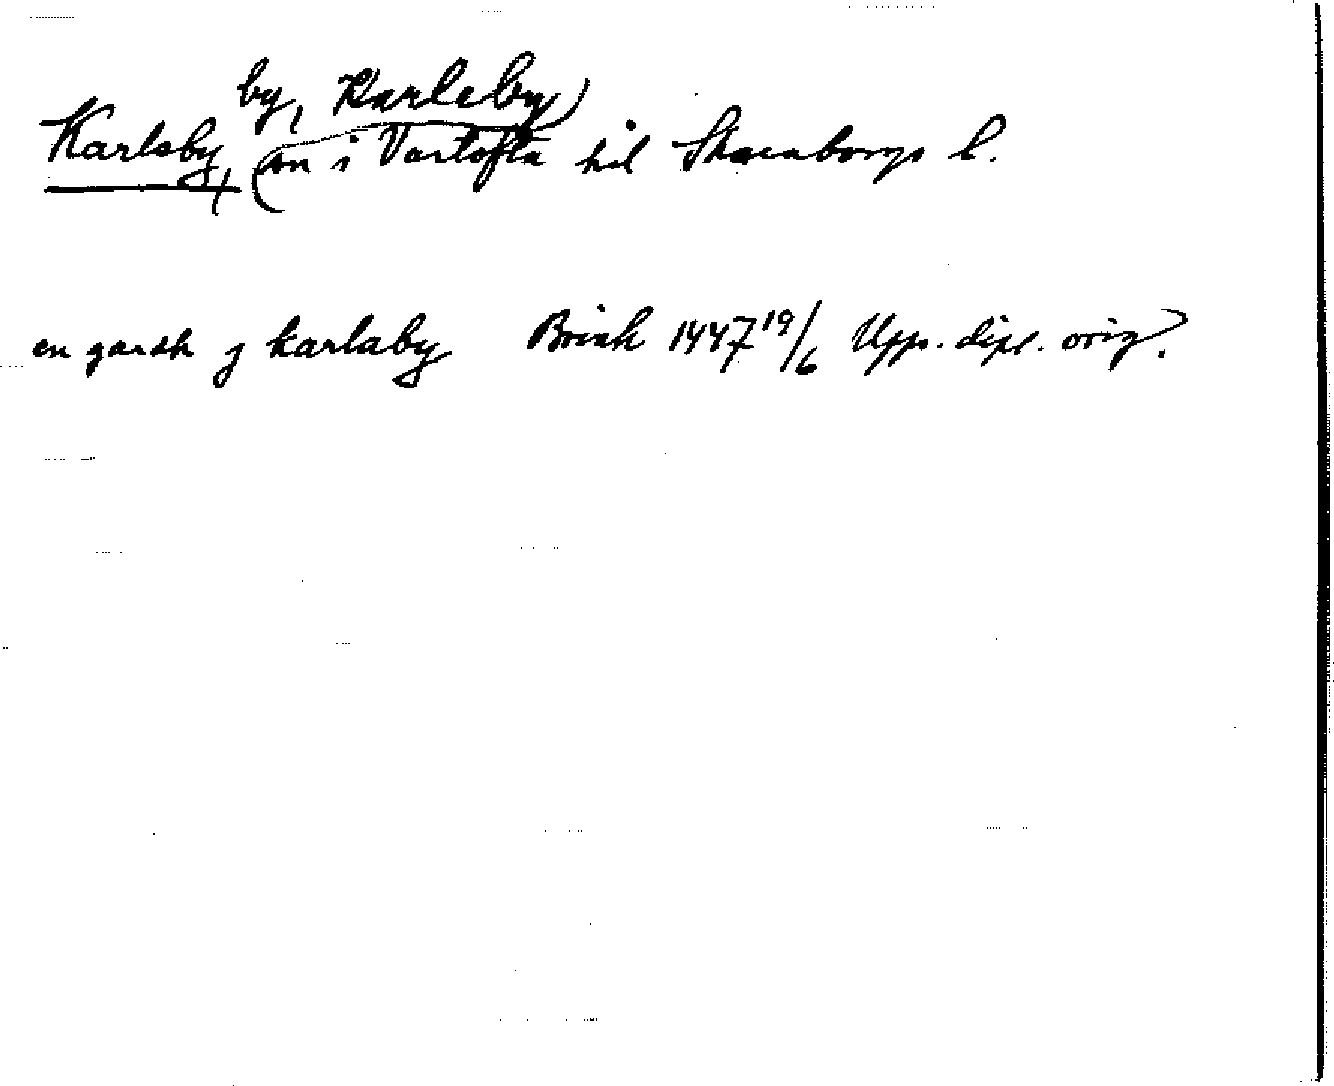 by, Karleby)
Karlaby, (sn i Vartofta hd Skaraborgs l.
en gardh j karlaby Brink 1447 19/6 Upps. dipl. orig?